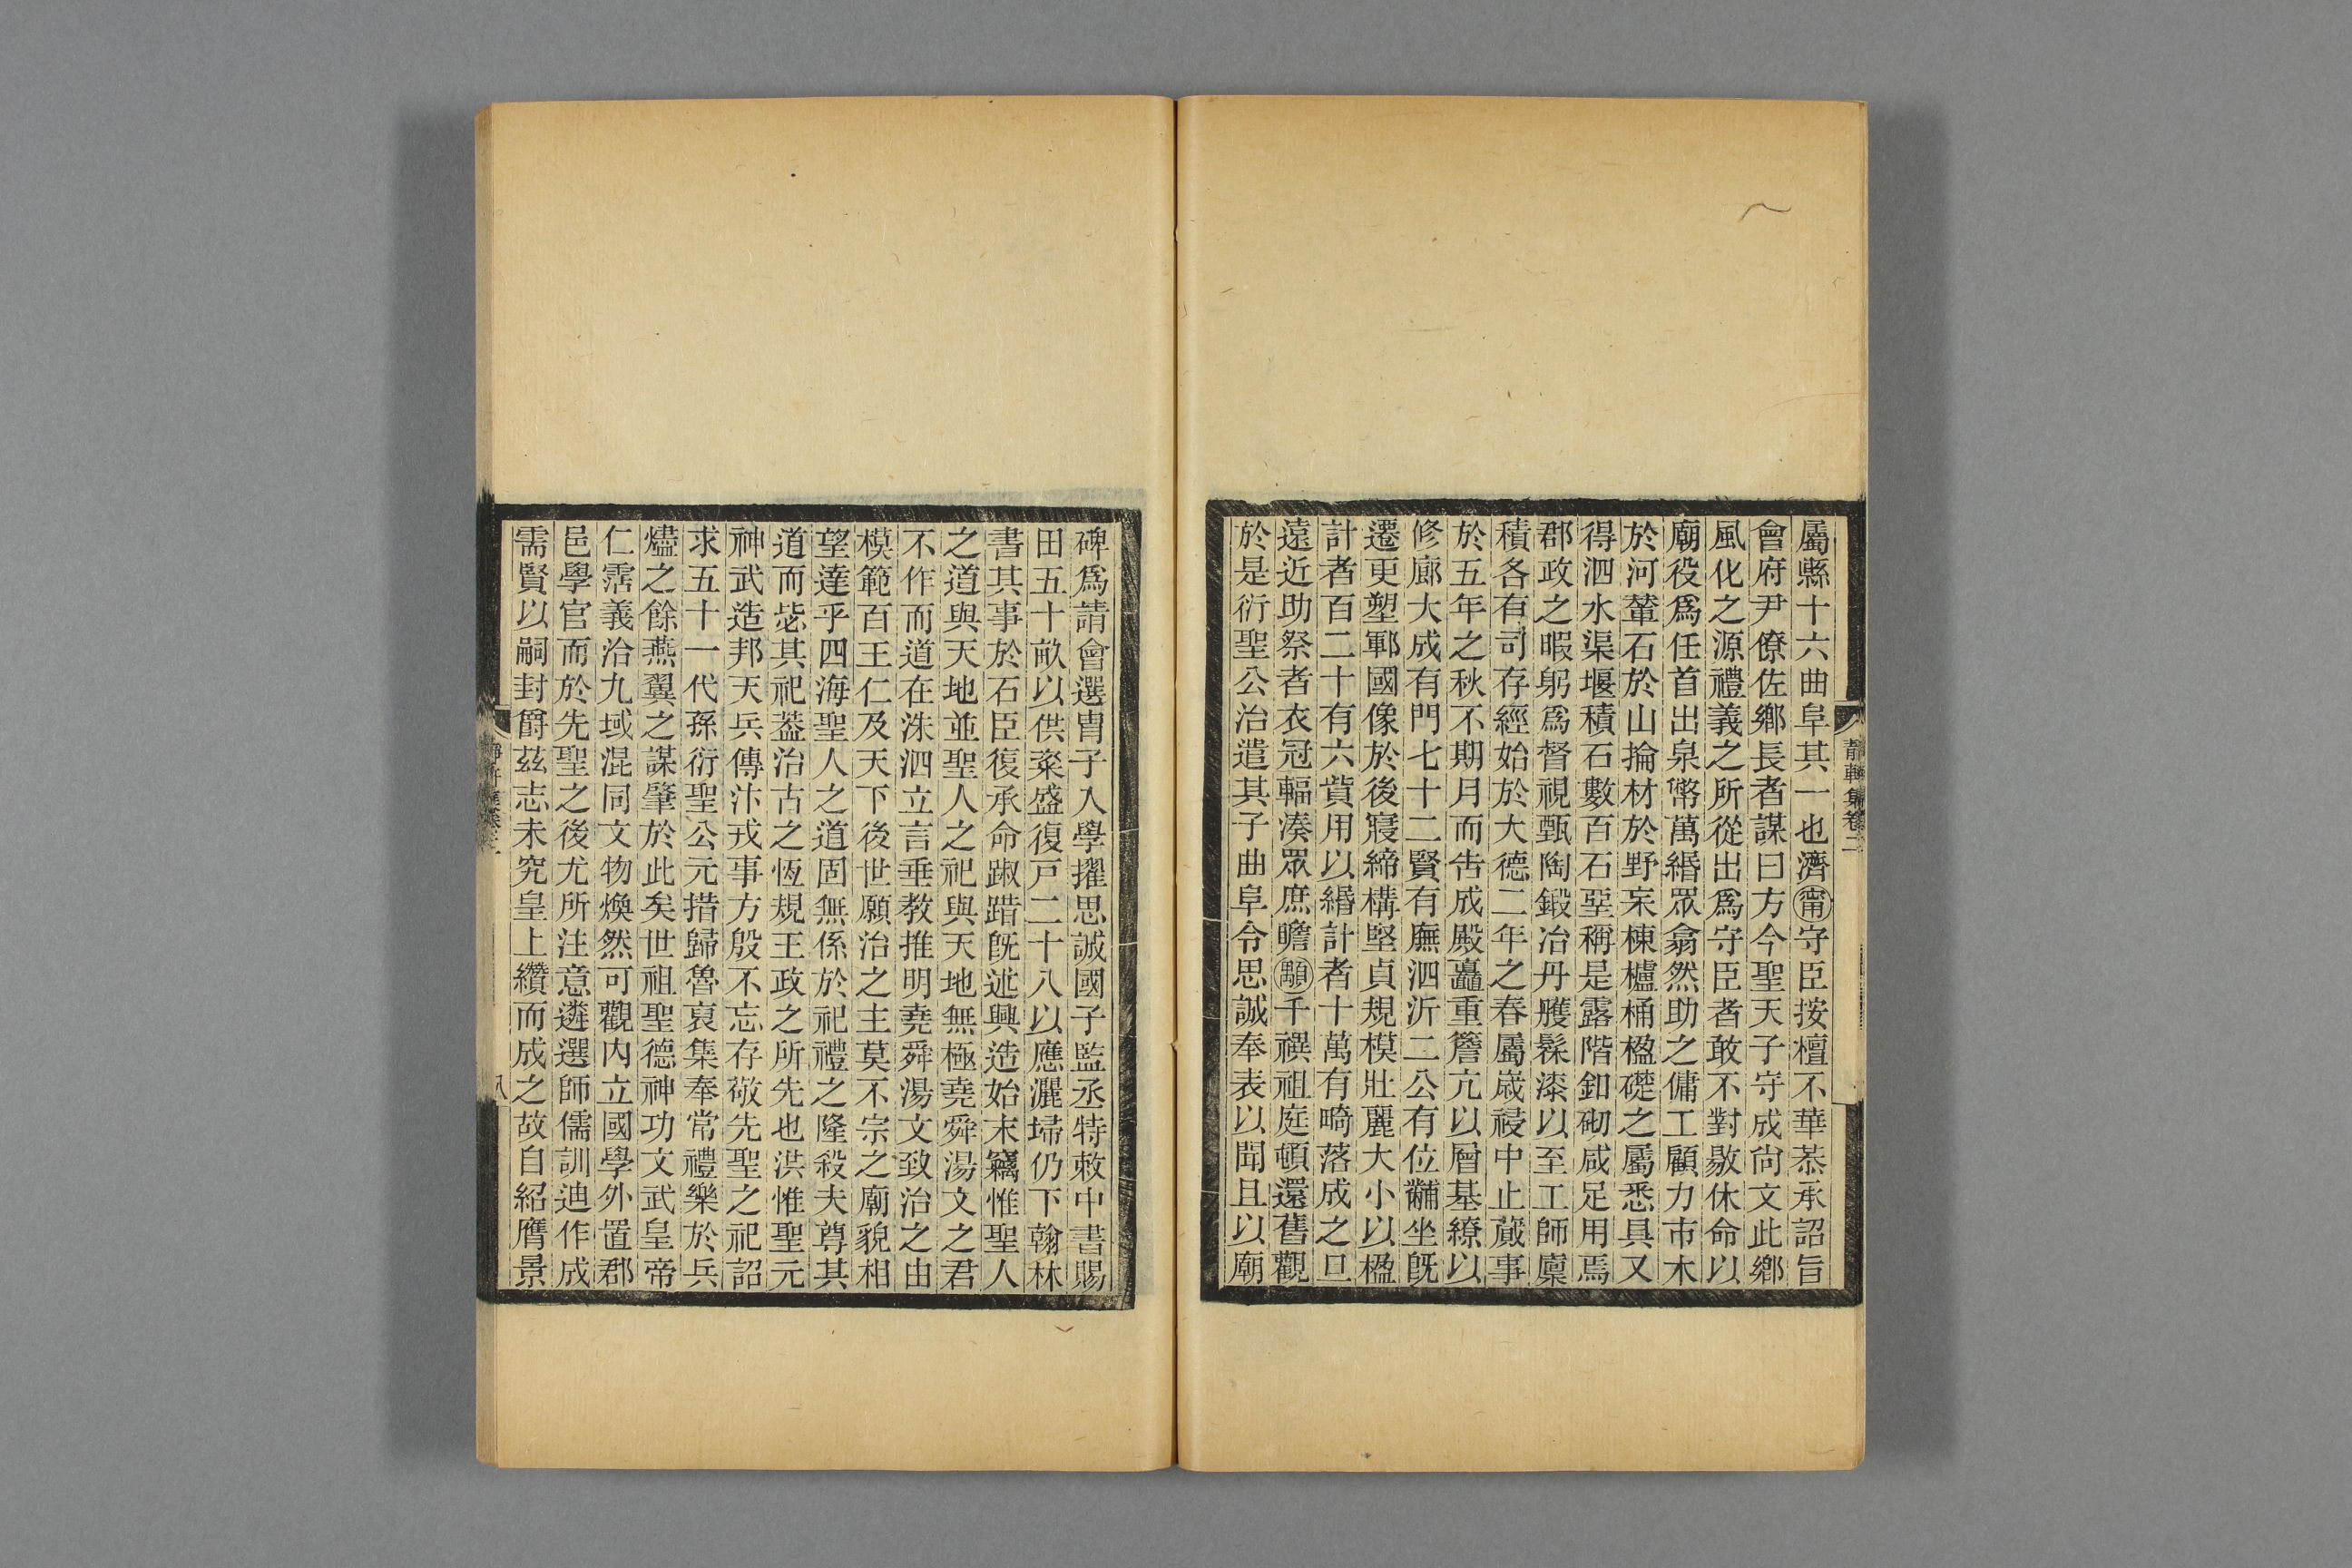 屬縣十六曲阜其一也濟甯守臣按檀不華恭承詔旨
會府尹僚佐鄉長者謀曰方今聖天子守成尙文此鄉
風化之源禮義之所從出爲守臣者敢不對敭休命以
廟役爲任首出泉幣萬緡眾翕然助之傭工顧力市木
於河輦石於山掄材於野宋棟櫨桷楹礎之屬悉具又
得泗水渠堰積石數百石堊稱是露階釦砌咸足用焉
郡政之暇躬爲督視甄陶鍛冶丹雘髹漆以至工師廩
積各有司存經始於大德二年之春屬歲祲中止蕆事
於五年之秋不期月而告成殿矗重簷亢以層基繚以
修廊大成有門七十二賢有廡泗沂二公有位黼坐旣
遷更塑鄆國像於後寢締構堅貞規模壯麗大小以楹
計者百二十有六貲用以緡計者十萬有畸落成之旦
遠近助祭者衣冠輻湊眾庶瞻顒千禩祖庭頓還舊觀
於是衍聖公治遣其子曲阜令思誠奉表以聞且以廟
碑爲請會選胄子入學擢思誠國子監丞特敕中書賜
田五十畝以供粢盛復戸二十八以應灑埽仍下翰林
書其事於石臣復承命踧踖旣述興造始末竊惟聖人
之道與天地並聖人之祀與天地無極堯舜湯文之君
不作而道在洙泗立言垂教推明堯舜湯文致治之由
模範百王仁及天下後世願治之主莫不宗之廟貌相
望達乎四海聖人之道固無係於祀禮之隆殺夫尊其
道而毖其祀葢治古之恆規王政之所先也洪惟聖元
神武造邦天兵傳汴戎事方殷不忘存敬先聖之祀詔
求五十一代孫衍聖公元措歸魯裒集奉常禮樂於兵
燼之餘燕翼之謀肇於此矣世祖聖德神功文武皇帝
仁霑義洽九域混同文物煥然可觀內立國學外置郡
邑學官而於先聖之後尤所注意遴選師儒訓迪作成
需賢以嗣封爵茲志未究皇上纘而成之故自紹膺景
靜軒集卷二
八